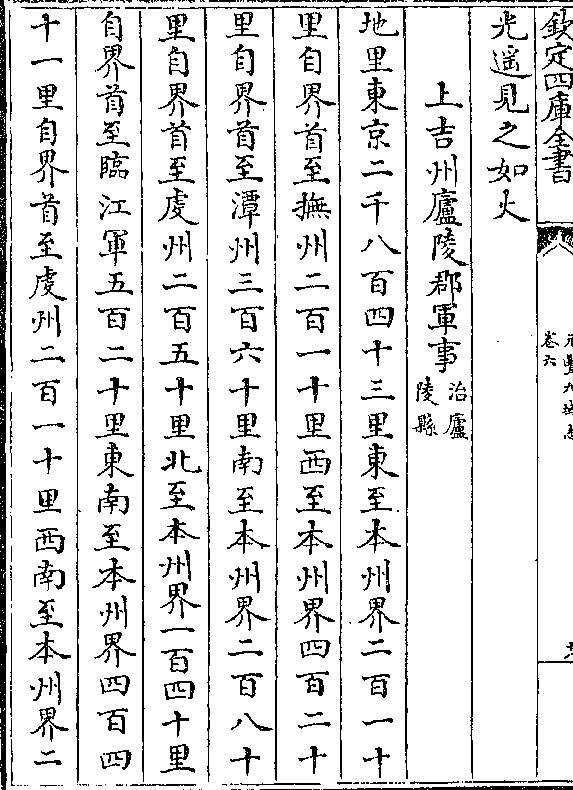 欽定四庫全書
元豐九域志
卷六
光遥見之如火
上吉州廬陵郡軍事治廬陵縣
地里東京二千八百四十三里東至本州界二百一十
里自界首至撫州二百一十里西至本州界四百二十
里自界首至潭州三百六十里南至本州界二百八十
里自界首至虔州二百五十里北至本州界一百四十里
自界首至臨江軍五百二十里東南至本州界四百四
十一里自界首至虔州二百一十里西南至本州界二